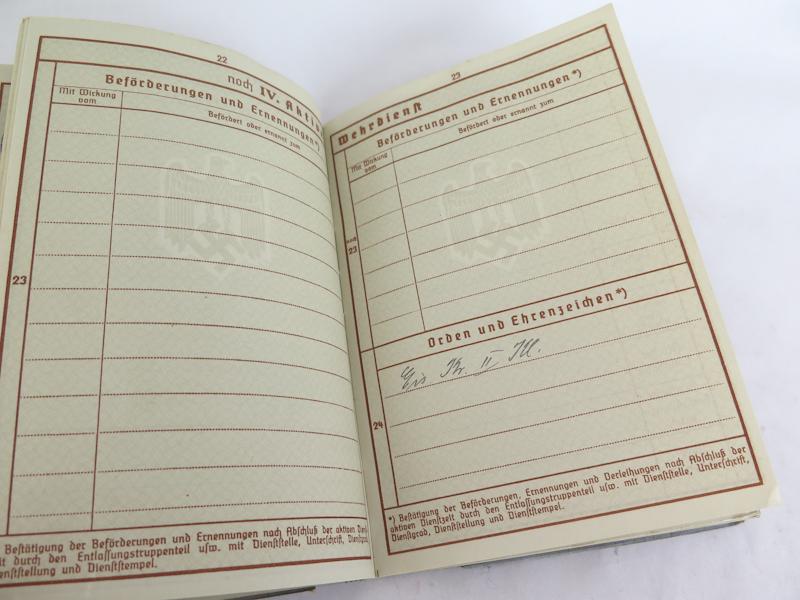 22
noch IV. Akti
Beförderungen und Ernennungen*)
Mit Wirkung vom
Befördert oder ernannt zum
23
Bestätigung der Beförderungen und Ernennungen nach Abschluß der aktiven Dien
it durch den Entlassungstruppenteil usw. mit Dienststelle, Unterschrift, Dienstgrad,
enststellung und Dienststempel.
23
Wehrdienst
Beförderungen und Ernennungen*)
Mit Wirkung vom
Befördert oder ernannt zum
noch 23
Orden und Ehrenzeichen*)
Eis Kr. II Kl.
24
*) Bestätigung der Beförderungen, Ernennungen und Verleihungen nach Abschluß der
aktiven Dienstzeit durch den Entlassungstruppenteil usw. mit Dienststelle, Unterschrift,
Dienstgrad, Dienststellung und Dienststempel.